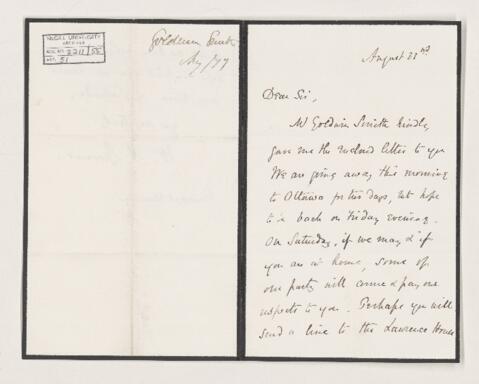 McGILL UNIVERSITY
ARCHIVES
ACC. NO. 2211/55
REF. 51
Goldwin Smith
Aug /77
August 22nd
Dear Sir,
Mr Goldwin Smith kindly
gave me the enclosed letter to you
We are going away this morning
to Ottawa for two days, but hope
to be back on Friday evening.
On Saturday, if we may, & if
you are at home, some of
our party will come & pay our
respects to you. Perhaps you will
send a line to the Lawrence House